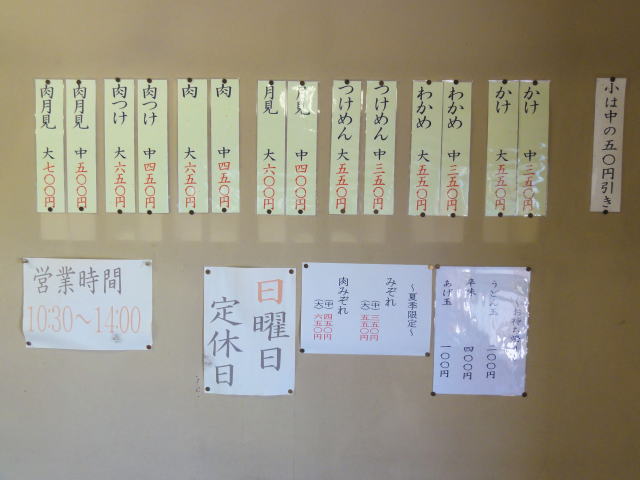 小は中の五〇円引き
かけ 中 三五〇円
かけ 大 五五〇円
わかめ 中 三五〇円
わかめ 大 五五〇円
つけめん 中 三五〇円
つけめん 大 五五〇円
月見 中 四〇〇円
月見 大 六〇〇円
肉 中 四五〇円
肉 大 六五〇円
肉つけ 中 四五〇円
肉つけ 大 六五〇円
肉月見 中 五〇〇円
肉月見 大 七〇〇円
営業時間
10:30～14:00
日曜日
定休日
～夏季限定～
みぞれ
(中) 三五〇円
(大) 五五〇円
肉みぞれ
(中) 四五〇円
(大) 六五〇円
うどん玉
四〇〇円
あげ玉 一〇〇円